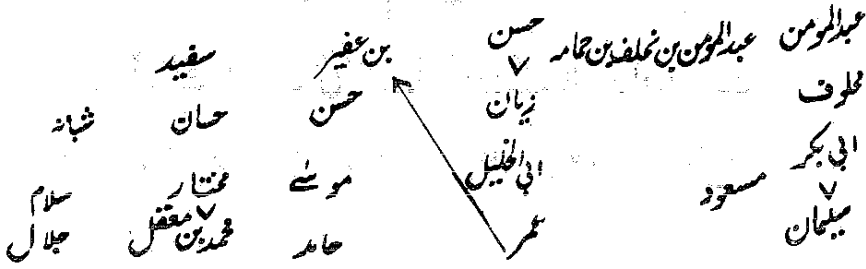 عبدالمومن عبدالمومن بن نحلف بن حمامہ حسن بن عفیر سفید
مخلوف زیان حسن حسان شبانہ
ابی بکر مسعود ابی الخلیل موسے مختار سلام
سلیمان عمر حامد محمد بن معقل جلال